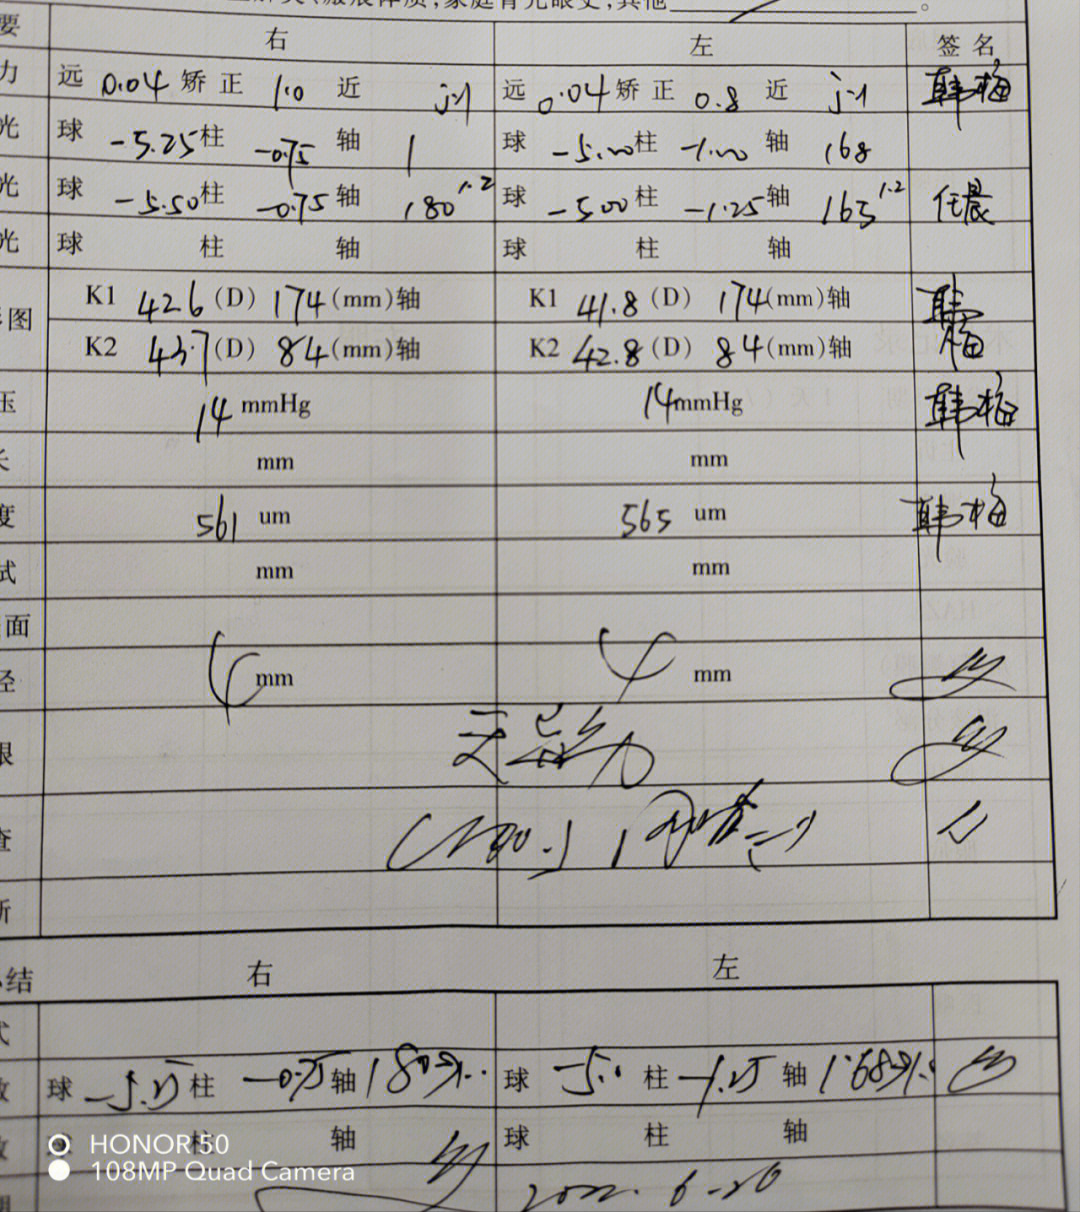 家庭青光眼史,其他 。
要 右 左 签名
力 远 0.04 矫正 1.0 近 j-1 远 0.04 矫正 0.8 近 j-1 韩梅
光 球 -5.25 柱 -0.75 轴 1 球 -5.00 柱 -1.00 轴 168
光 球 -5.50 柱 -0.75 轴 180 1.2 球 -5.00 柱 -1.25 轴 163 1.2 任晨
光 球 柱 轴 球 柱 轴
图 K1 42.6 (D) 174 (mm)轴 K1 41.8 (D) 174 (mm)轴 韩梅
K2 43.7 (D) 84 (mm)轴 K2 42.8 (D) 84 (mm)轴
压 14 mmHg 14 mmHg 韩梅
mm mm
度 561 um 565 um 韩梅
试 mm mm
面
径 mm mm
眼
查
断
小结 右 左
式
数 球 柱 -0.75 轴 180 球 -5.0 柱 -1.25 轴 168
数 球 柱 轴 球 柱 轴
期 2022. 6-26
HONOR 50
108MP Quad Camera